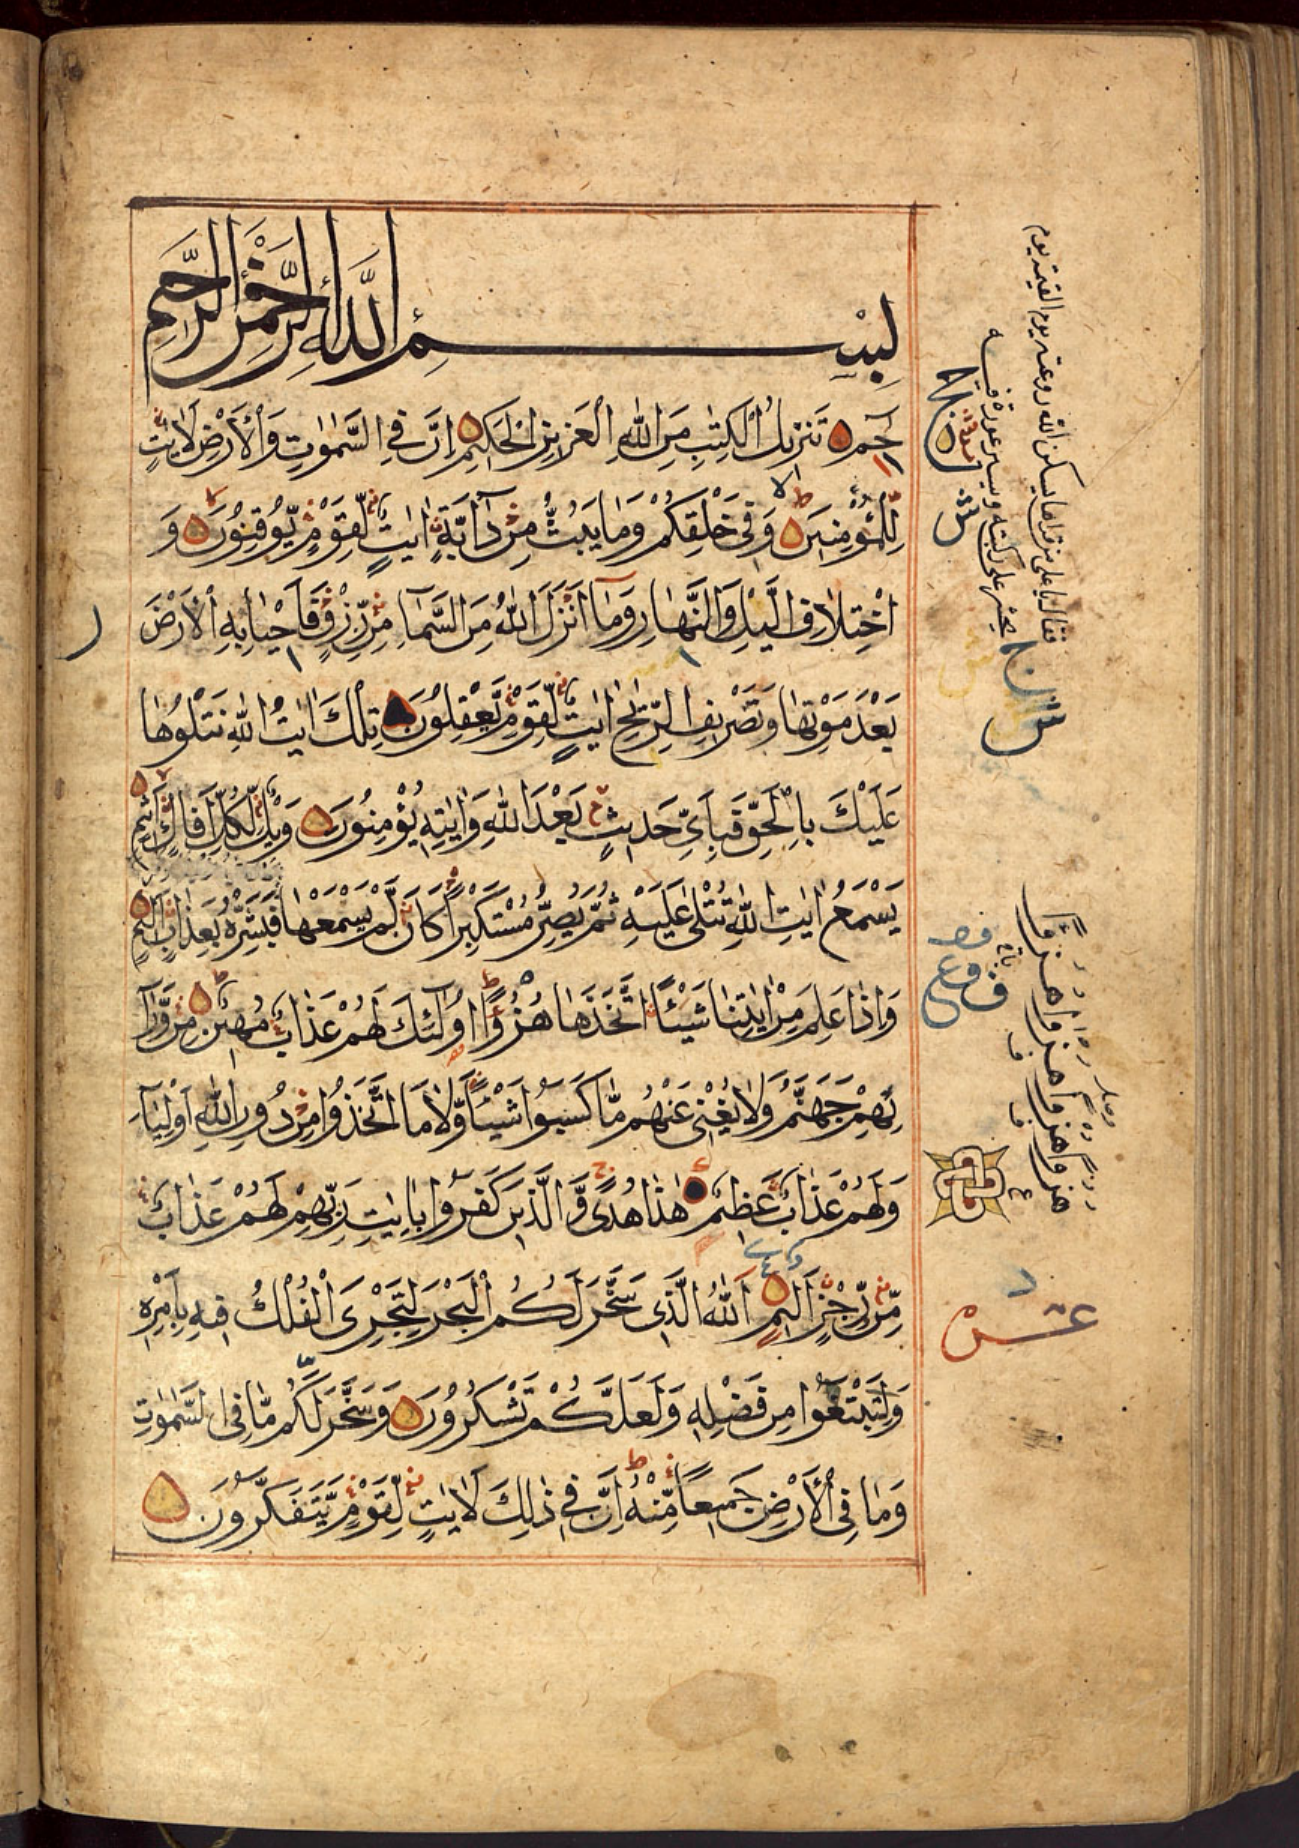 بِسْمِ اللَّهِ الرَّحْمٰنِ الرَّحِيمِ
حٰمٓ تَنْزِيلُ الْكِتٰبِ مِنَ اللّٰهِ الْعَزِيزِ الْحَكِيمِ اِنَّ فِي السَّمٰوٰتِ وَالْاَرْضِ لَاٰيٰتٍ
لِلْمُؤْمِنِينَ وَفِي خَلْقِكُمْ وَمَا يَبُثُّ مِنْ دَآبَّةٍ اٰيٰتٌ لِقَوْمٍ يُوقِنُونَ وَ
اخْتِلَافِ الَّيْلِ وَالنَّهَارِ وَمَآ اَنْزَلَ اللّٰهُ مِنَ السَّمَآءِ مِنْ رِزْقٍ فَاَحْيَا بِهِ الْاَرْضَ
بَعْدَ مَوْتِهَا وَتَصْرِيفِ الرِّيٰحِ اٰيٰتٌ لِقَوْمٍ يَعْقِلُونَ تِلْكَ اٰيٰتُ اللّٰهِ نَتْلُوهَا
عَلَيْكَ بِالْحَقِّ فَبِاَيِّ حَدِيثٍ بَعْدَ اللّٰهِ وَاٰيٰتِهِ يُؤْمِنُونَ وَيْلٌ لِكُلِّ اَفَّاكٍ اَثِيمٍ
يَسْمَعُ اٰيٰتِ اللّٰهِ تُتْلٰى عَلَيْهِ ثُمَّ يُصِرُّ مُسْتَكْبِرًا كَاَنْ لَمْ يَسْمَعْهَا فَبَشِّرْهُ بِعَذَابٍ اَلِيمٍ
وَاِذَا عَلِمَ مِنْ اٰيٰتِنَا شَيْئًا اتَّخَذَهَا هُزُوًا اُولٰٓئِكَ لَهُمْ عَذَابٌ مُهِينٌ مِنْ وَرَآ
ئِهِمْ جَهَنَّمُ وَلَا يُغْنِي عَنْهُمْ مَا كَسَبُوا شَيْئًا وَلَا مَا اتَّخَذُوا مِنْ دُونِ اللّٰهِ اَوْلِيَآءَ
وَلَهُمْ عَذَابٌ عَظِيمٌ هٰذَا هُدًى وَالَّذِينَ كَفَرُوا بِاٰيٰتِ رَبِّهِمْ لَهُمْ عَذَابٌ
مِنْ رِجْزٍ اَلِيمٌ اَللّٰهُ الَّذِي سَخَّرَ لَكُمُ الْبَحْرَ لِتَجْرِيَ الْفُلْكُ فِيهِ بِاَمْرِهِ
وَلِتَبْتَغُوا مِنْ فَضْلِهِ وَلَعَلَّكُمْ تَشْكُرُونَ وَسَخَّرَ لَكُمْ مَا فِي السَّمٰوٰتِ
وَمَا فِي الْاَرْضِ جَمِيعًا مِنْهُ اِنَّ فِي ذٰلِكَ لَاٰيٰتٍ لِقَوْمٍ يَتَفَكَّرُونَ
عشر